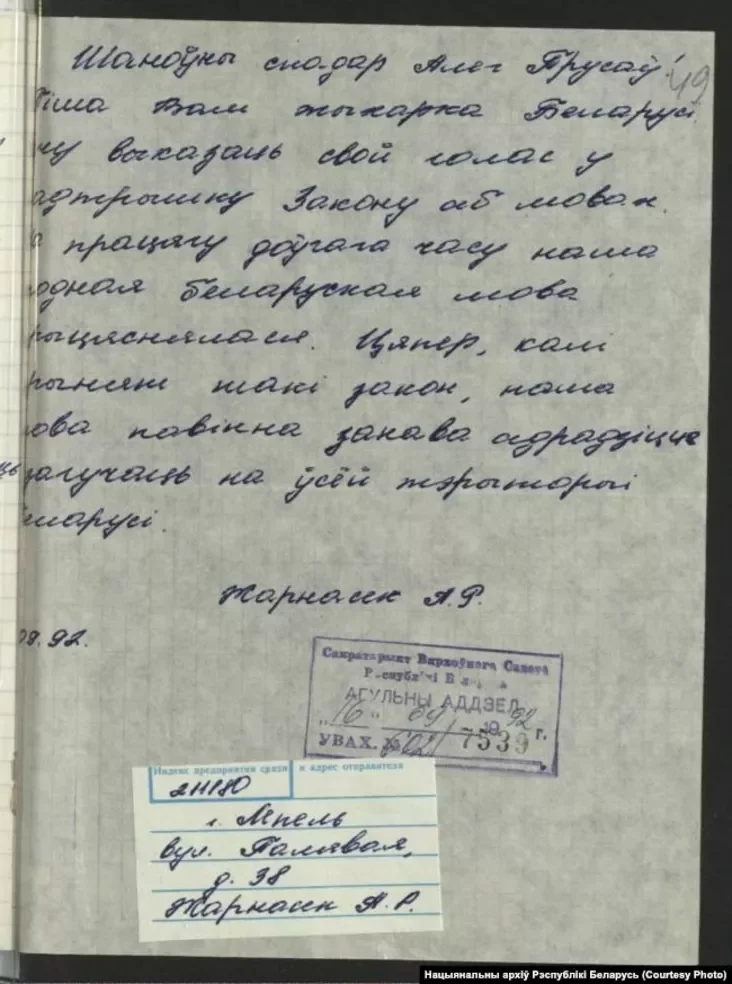 Шаноўны спадар Алег Трусаў! 49
біма Вам жыхарка Беларусі.
чу выказаць свой голас у
адтрымку Закону аб мовах.
а працягу доўгага часу наша
одная беларуская мова
рыцяснялася. Цяпер, калі
рыняты такі закон, наша
ова павінна занава адрадзіцца
загучаць на ўсёй тэрыторыі
еларусі.
Жарнасек А.Р.
09.92.
Сакратарыят Вярхоўнага Савета
Рэспублікі Беларусь
АГУЛЬНЫ АДДЗЕЛ
„16“ 09 1992 г.
УВАХ. № 7539
Индекс предприятия связи и адрес отправителя
211180
г. Лепель
вул. Палявая,
д. 38
Жарнасек А.Р.
Нацыянальны архіў Рэспублікі Беларусь (Courtesy Photo)